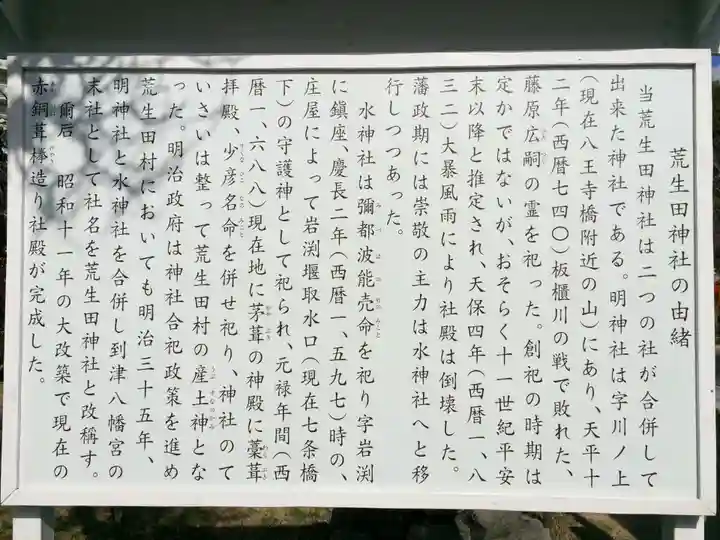 荒生田神社の由緒
当荒生田神社は二つの社が合併して
出来た神社である。明神社は字川ノ上
(現在八王寺橋附近の山)にあり、天平十
二年(西暦七四〇)板櫃川の戦で敗れた、
藤原広嗣の霊を祀った。創祀の時期は
定かではないが、おそらく十一世紀平安
末以降と推定され、天保四年(西暦一、八
三二)大暴風雨により社殿は倒壊した。
藩政期には崇敬の主力は水神社へと移
行しつつあった。
水神社は彌都波能売命を祀り字岩渕
に鎭座、慶長二年(西暦一、五九七)時の、
庄屋によって岩渕堰取水口(現在七条橋
下)の守護神として祀られ、元禄年間(西
暦一、六八八)現在地に茅葺の神殿に藁葺
拝殿、少彦名命を併せ祀り、神社のて
いさいは整って荒生田村の産土神とな
った。明治政府は神社合祀政策を進め
荒生田村においても明治三十五年、
明神社と水神社を合併し到津八幡宮の
末社として社名を荒生田神社と改稱す。
爾后 昭和十一年の大改築で現在の
赤銅葺棒造り社殿が完成した。